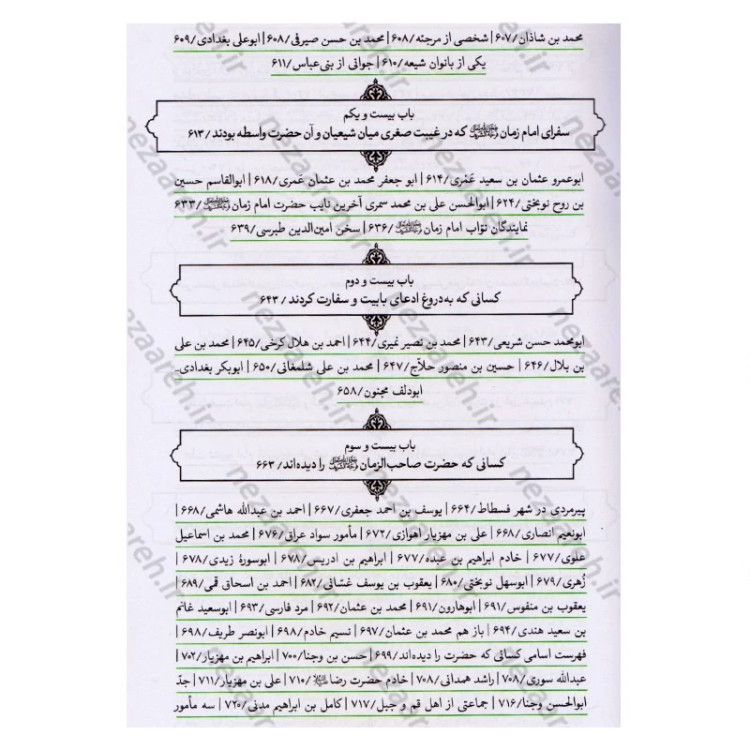 محمد بن شاذان/۶۰۷ | شخصی از مرجئه/۶۰۸ | محمد بن حسن صیرفی/۶۰۸ | ابوعلی بغدادی/۶۰۹
یکی از بانوان شیعه/۶۱۰ | جوانی از بنی‌عباس/۶۱۱
باب بیست و یکم
سفرای امام زمان که در غیبت صغری میان شیعیان و آن حضرت واسطه بودند/۶۱۳
ابوعمرو عثمان بن سعید عَمْری/۶۱۴ | ابو جعفر محمد بن عثمان عَمری/۶۱۸ | ابوالقاسم حسین
بن روح نوبختی/۶۲۴ | ابوالحسن علی بن محمد سمری آخرین نایب حضرت امام زمان/۶۳۳
نمایندگان نوّاب امام زمان/۶۳۶ | سخن امین‌الدین طبرسی/۶۳۹
باب بیست و دوم
کسانی که به‌دروغ ادعای بابیت و سفارت کردند/۶۴۳
ابومحمد حسن شریعی/۶۴۳ | محمد بن نصیر نمیری/۶۴۴ | احمد بن هلال کرخی/۶۴۵ | محمد بن علی
بن بلال/۶۴۶ | حسین بن منصور حلّاج/۶۴۷ | محمد بن علی شلمغانی/۶۵۰ | ابوبکر بغدادی-
ابودلف مجنون/۶۵۸
باب بیست و سوم
کسانی که حضرت صاحب‌الزمان را دیده‌اند/۶۶۳
پیرمردی در شهر فسطاط/۶۶۴ | یوسف بن احمد جعفری/۶۶۷ | احمد بن عبدالله هاشمی/۶۶۸ |
ابونعیم انصاری/۶۶۸ | علی بن مهزیار اهوازی/۶۷۲ | مأمور سواد عراق/۶۷۶ | محمد بن اسماعیل
علوی/۶۷۷ | خادم ابراهیم بن عبده/۶۷۷ | ابراهیم بن ادریس/۶۷۸ | ابوسورهٔ زیدی/۶۷۸ |
زُهری/۶۷۹ | ابوسهل نوبختی/۶۸۰ | یعقوب بن یوسف غسّانی/۶۸۲ | احمد بن اسحاق قمی/۶۸۹ |
یعقوب بن منفوس/۶۹۱ | ابوهارون/۶۹۱ | محمد بن عثمان/۶۹۲ | مرد فارسی/۶۹۳ | ابوسعید غانم
بن سعید هندی/۶۹۴ | باز هم محمد بن عثمان/۶۹۷ | نسیم خادم/۶۹۸ | ابونصر طریف/۶۹۸ |
فهرست اسامی کسانی که حضرت را دیده‌اند/۶۹۹ | حسن بن وجنا/۷۰۰ | ابراهیم بن مهزیار/۷۰۲ |
عبدالله سوری/۷۰۸ | راشد همدانی/۷۰۸ | خادم حضرت رضا/۷۱۰ | علی بن مهزیار/۷۱۱ | جدّ
ابوالحسن وجنا/۷۱۶ | جماعتی از اهل قم و جبل/۷۱۷ | کامل بن ابراهیم مدنی/۷۲۰ | سه مأمور
nezaareh.ir